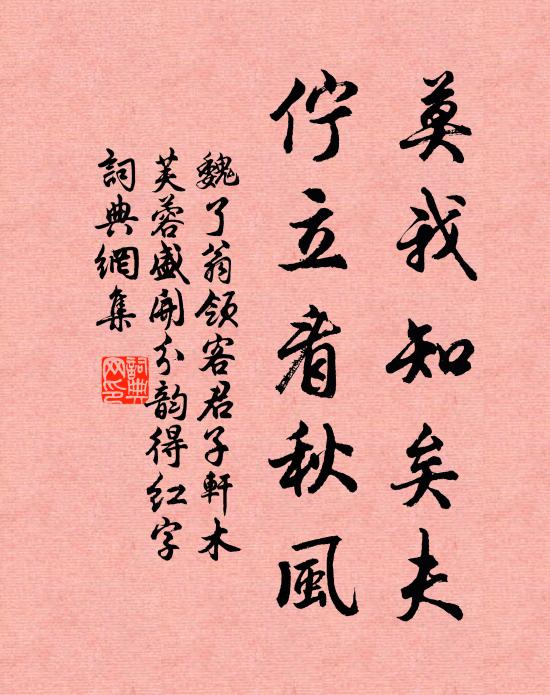 莫我知矣夫
佇立看秋風
魏了翁領客君子軒木
芙蓉盛開分韵得紅字
詞典網集
詞典
网印